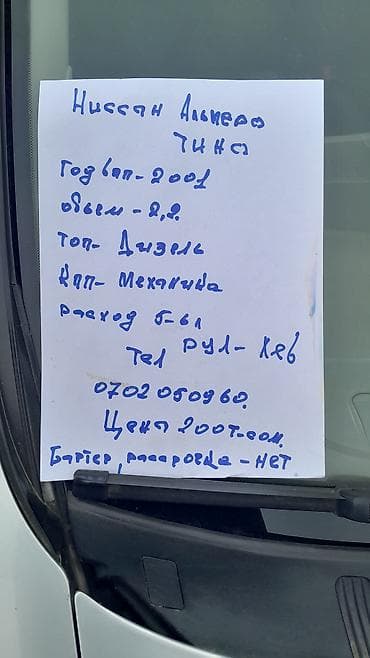 Ниссан Альмера
Тино
Год вып-2001
объем-2,2.
топ-Дизель
Кпп-Механика
расход 5-6л
рул-лев
Тел
0702050960.
Цена 200т-сом.
Бартер, расрочка-нет